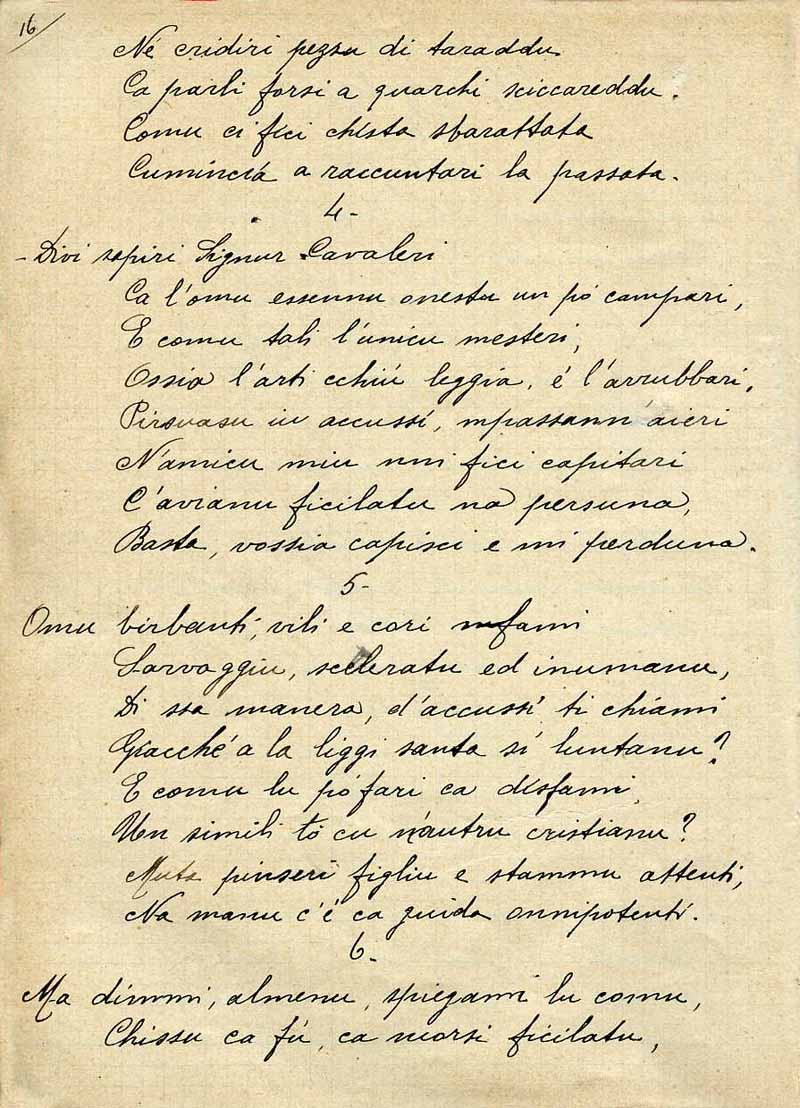 16
Né cridiri pezzu di taraddu
Ca parli forsi a quarchi sciccareddu.
Comu ci fici chista sbarattata
Cumincia a raccuntari la passata.
4-
- Divi sapiri Signur Cavaleri
Ca l'omu essennu onestu un pó campari,
E comu tali l'unicu mesteri,
Ossia l'arti cchiú leggia, é l'arrubbari,
Pirsuasu iu accussí, mpassann'aieri
N'amicu miu nni fici capitari
C'avianu ficilatu na persuna,
Basta, vossia capisci e mi perduna.
5-
Omu birbanti, vili e cori nfami
Sarvaggiu, sceleratu ed inumanu,
Di ssa manera, d'accussí ti chiami
Giacché a la liggi santa sí luntanu?
E comu lu pó fari ca disfami
Un simili tó cu n'autru cristianu?
Muta pinseri figliu e stammu attenti,
Na manu c'é ca guida onnipotenti.
6-
Ma dimmi, almenu, spiegami lu comu,
Chissu ca fú, ca morsi ficilatu,